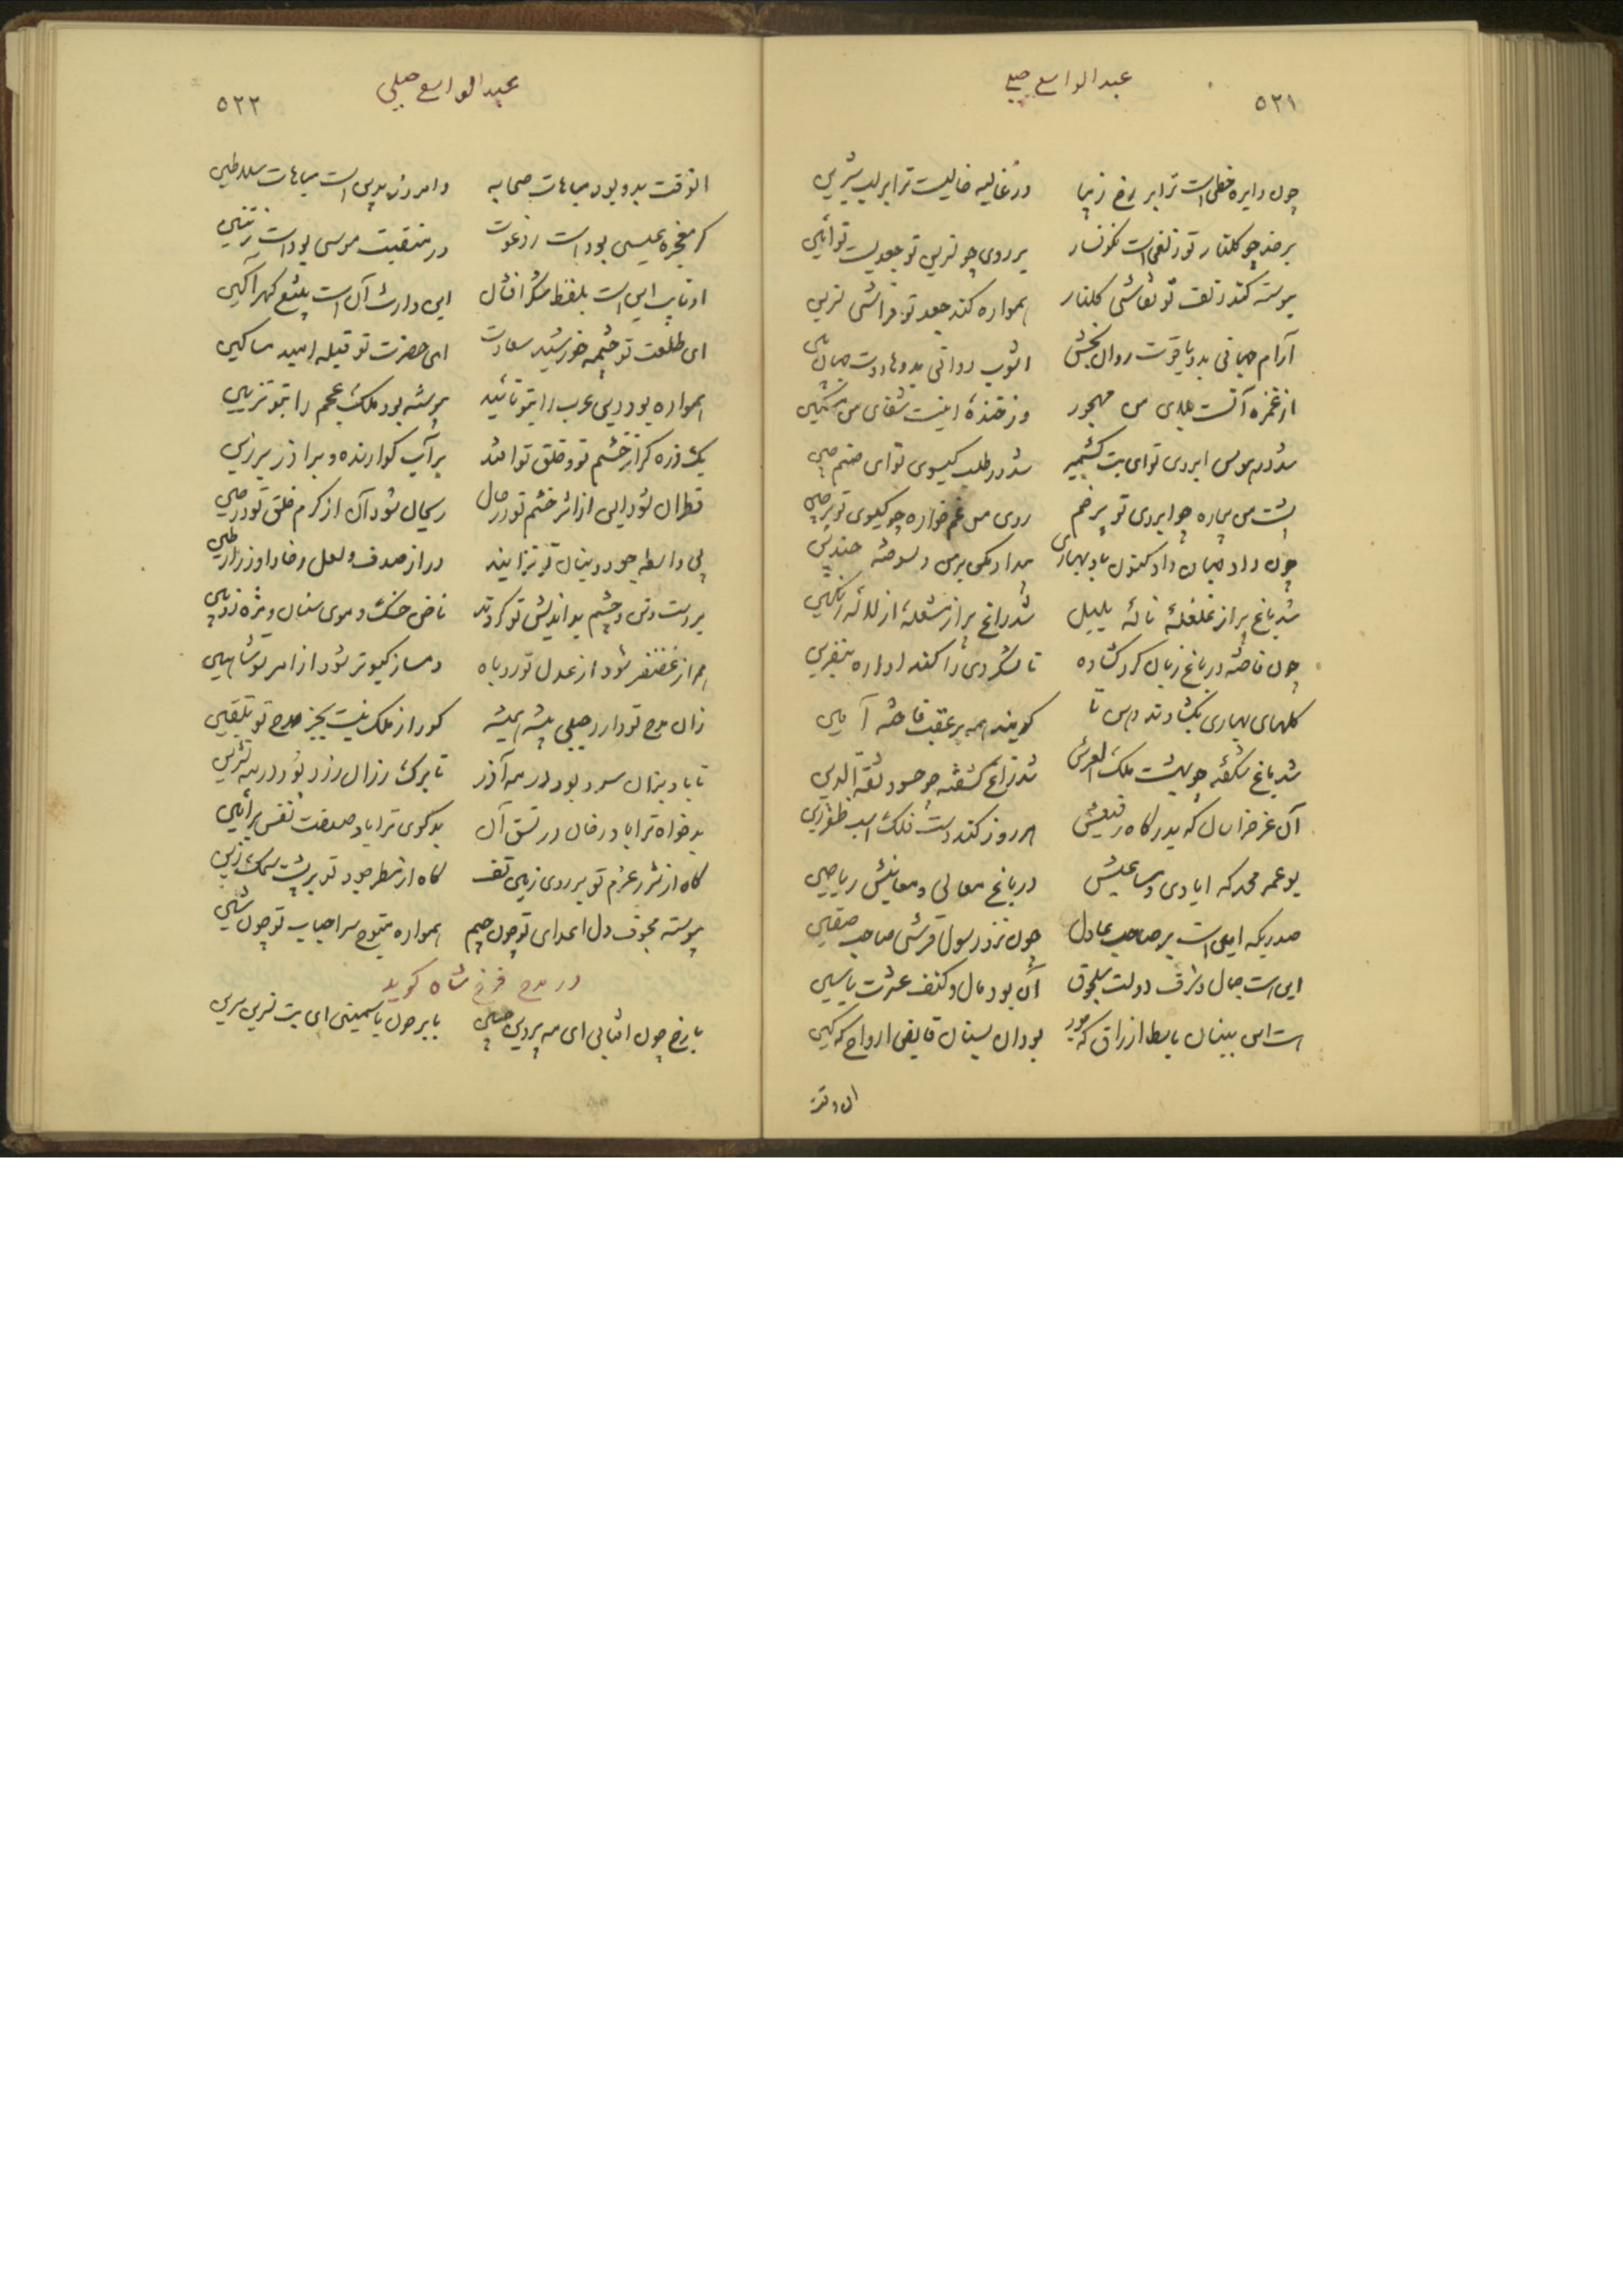 ۵۲۱
عبدالواسع جبلی
چون دایره خطی است ترا بر رخ زیبا در غالیه خالیست ترا بر لب شیرین
بر خد چو گلنار تو زلفی است نگونسار بر روی چو نسرین تو جعدیست نوآیین
پیوسته کند زلف تو نقاشی گلنار همواره کند جعد تو فراشی نسرین
آرام جهانی بدو یاقوت روان بخش آشوب روانی بدو هاروت جهان بین
از غمزه آنست بلای من مهجور وز خنده اینست شفای من مسکین
شد در هوس ابروی تو ای بت کشمیر شد در طلب گیسوی تو ای صنم چین
پشت من بیچاره چو ابروی تو پر خم روی من غمخواره چو گیسوی تو پر چین
چون داد جهان داد کنون باد بهاری من دلسوخته چندین
شد باغ پر از غلغله ناله بلبل شد راغ پر از مشعله از لاله رنگین
چون فاخته در باغ زبان کرد گشاده تا لشکر دی را کند آواره بنفرین
گلهای بهاری بگشادند دهن تا گویند همه بر عقب فاخته آمین
شد باغ شکفته چو بهشت ملک العرش شد زاغ کشفته چو حسود ثقة الدین
آن عز خراسان که بدرگاه رفیعش هر روز کند دست فلک اسب ظفر زین
بوعمر محمد که ایادی و مساعیش در باغ معالی و معانیش ریاحین
صدریکه امین است بر صاحب عادل چون نزد رسول قرشی صاحب صفین
این است جمال و شرف دولت سلجوق آن بود مال و کنف عترت یاسین
است این ببنان باسط ارزاق که جود بود آن بسنان قابض ارواح که کین
آن وقت
۵۲۲
عبدالواسع جبلی
آنوقت بدو بود مباهات صحابه و امروز بدین است مباهات سلاطین
گر معجزه عیسی بود است ز دعوت در منقبت موسی بود است ز تنین
او نایب این است بلفظ شکر افشان این وارث آن است بتیغ گهر آگین
ای طلعت تو چشمه خورشید سعادت ای حضرت تو قبله امید مساکین
همواره بود دین عرب را بتو تأیید پیوسته بود ملک عجم را بتو تزیین
یک ذره گر از خشم تو و خلق تو افتد بر آب گوارنده و بر آذر برزین
قطران شود این از اثر خشم تو در حال ریحان شود آن از کرم خلق تو در حین
بی واسطه جود و بنان تو نزایند در از صدف و لعل ز خارا و زر از طین
بر دست و تن و چشم بداندیش تو کردند ناخن خسک و موی سنان و مژه زوبین
همراز غضنفر شود از عدل تو روباه دمساز کبوتر شود از امر تو شاهین
زان مدح تو دارد جبلی پیشه همیشه کو را ز ملک نیست بجز مدح تو تلقین
تا باد بزان سرد بود در مه آذر تا برگ رزان زرد بود در مه تشرین
بدخواه ترا باد رخان در تسق آن بدگوی ترا باد صفت نفس بر آیین
گاه از شرر عزم تو بر روی زمین تف گاه از شطر جود تو بر پشت سمک زین
پیوسته مجوف دل اعدای تو چون جیم همواره متوج سر احباب تو چون شین
در مدح فرخ شاه گوید
با رخ چون آفتابی ای مه پروین جبین با بر چون یاسمینی ای بت نسرین سرین